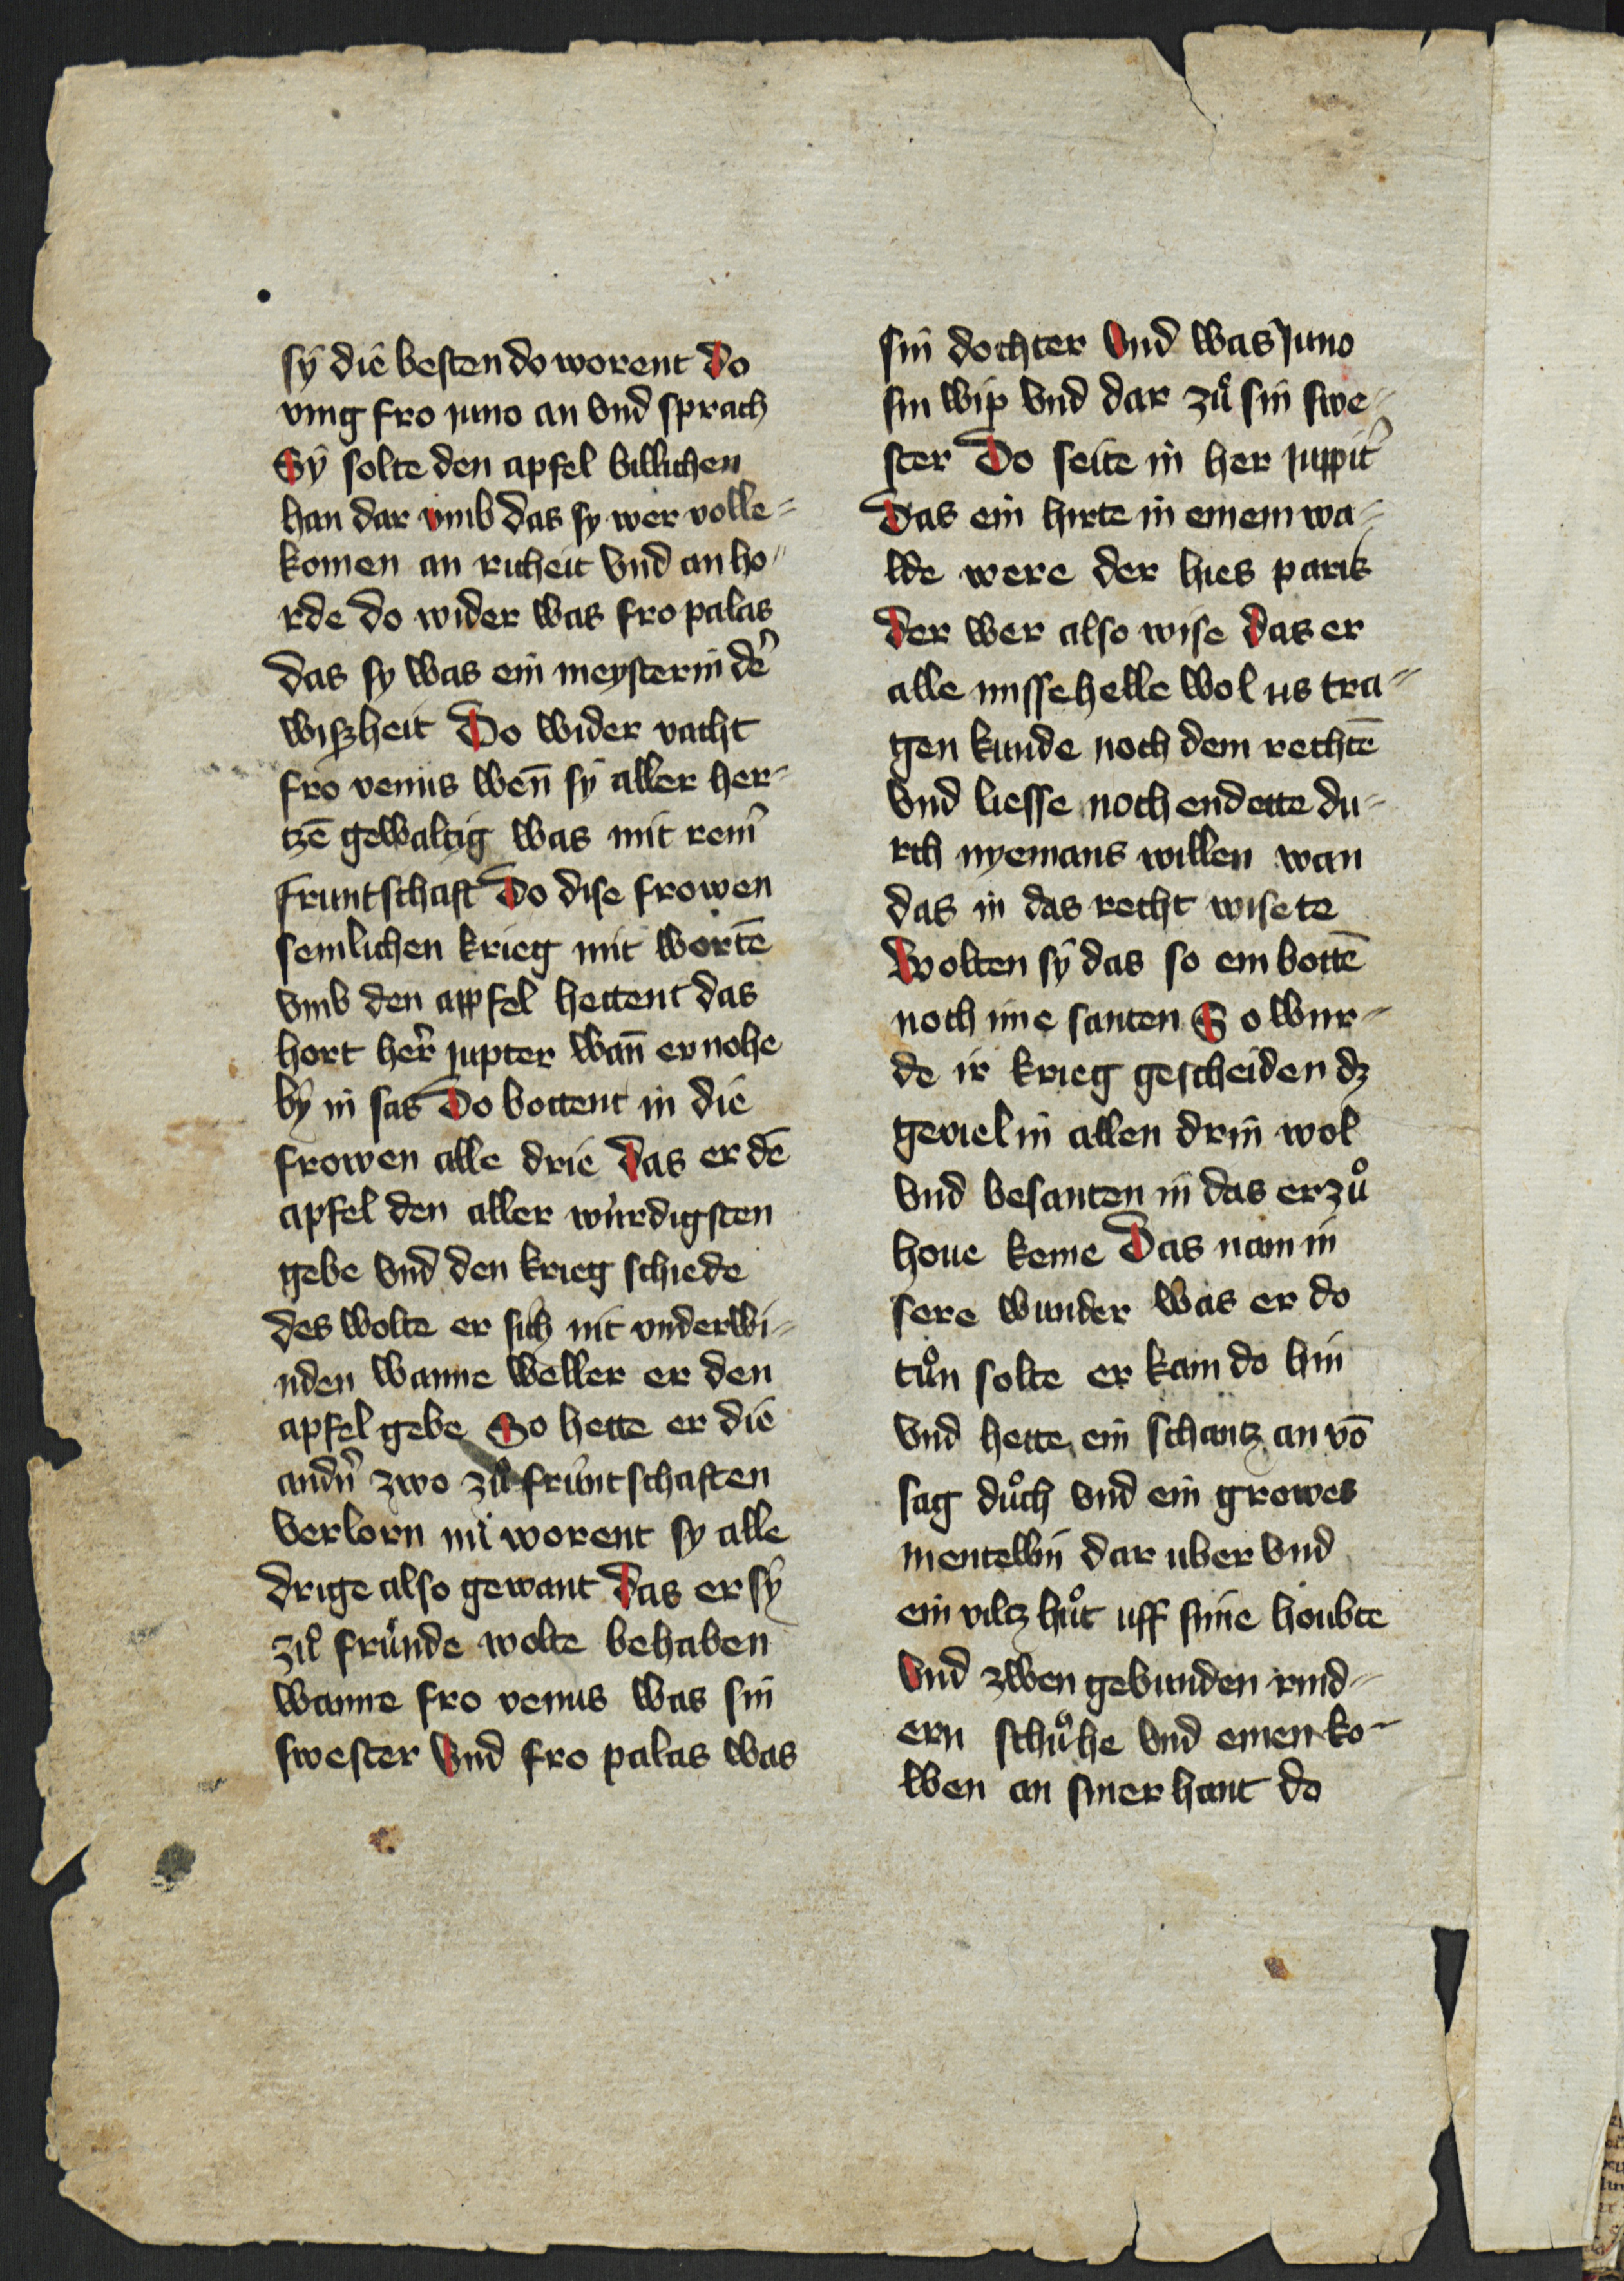 sÿ die besten do worent Do
ving fro juno an vnd sprach
Sÿ solte den apfel billichen
han dar vmb das sy wer volle=
komen an richeit vnd an ho=
rde do wider was fro palas
das sy was ein meysterin dê
wiszheit Do wider vacht
fro venus wen̄ sÿ aller her=
tzē gewaltig was mit reinˀ
fruntschaft Do dise frowen
semlichen krieg mit wortē
vmb den appfel hettent das
hort heˀr jupter wan̄ er nohe
bÿ in sas Do bottent in die
frowen alle drie Das er dē
apfel den aller wùrdigsten
gebe vnd den krieg schiede
des wolte er sich nit vnderwi=
nden wanne weller er den
apfel gebe So hette er die
andn̄ˀ zwo zů fruntschaften
verlorn nů worent sy alle
drige also gewant Das er sÿ
zů frúnde wolte behaben
wanne fro venus was sin
swester Vnd fro palas was
sin dochter Vnd was Juno
sin wip vnd dar zů sin swe=
ster Do seite in her juppitˀ
Das ein hirte in einem wa=
lde were der hies paris
Der wer also wise Das er
alle missehelle wol us tra=
gen kunde noch dem rechtē
vnd liesse noch endette du=
rch nyemans willen wan
das in das recht wisete
Wolten sÿ das so ein bottē
noch ime santen So wur=
de ir krieg gescheiden dz
geviel in allen drin wol
vnd besanten in das er zů
houe keme Das nam in
sere wunder was er do
tůn solte er kam do hin
vnd hette ein schantz an vō
sag důch vnd ein growes
mentellin dar uber vnd
ein viltz hůt uff sinē houbte
Vnd zwen gebunden rind=
ern schůhe vnd einen ko=
lwen an siner hant do